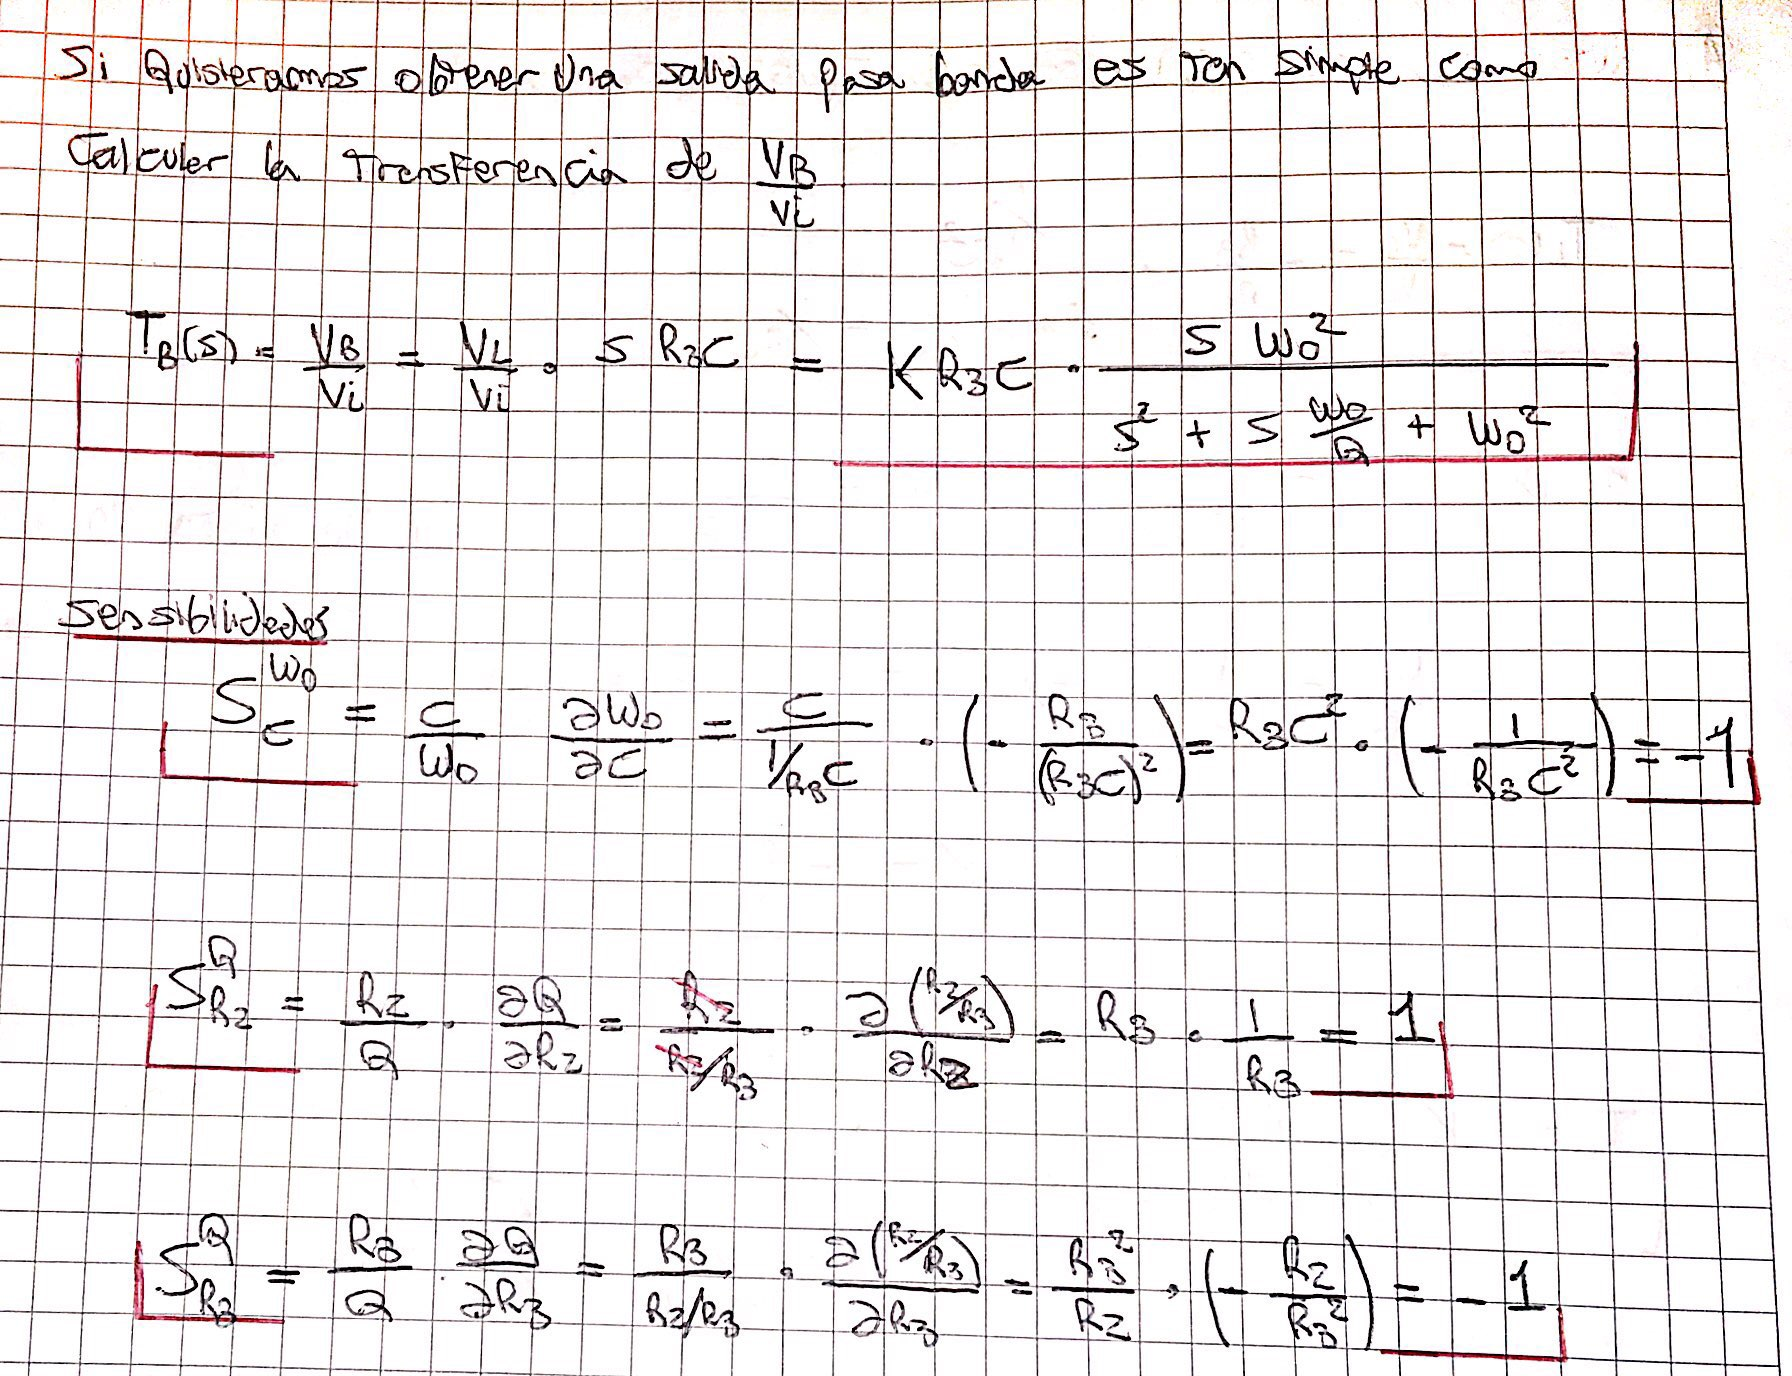 Si Quisieramos obtener una salida pasa banda es tan simple como
Calcular la transferencia de VB/Vi
T_B(S) = VB/Vi = VL/Vi · S R3C = K R3 C · (S W0²)/(S² + S W0/Q + W0²)
sensibilidades
S_C^W0 = C/W0 ∂W0/∂C = C/(1/R3C) · (- R3/(R3C)²) = R3C² · (- 1/(R3C²)) = -1
S_R2^Q = R2/Q · ∂Q/∂R2 = R2/(R2/R3) · ∂(R2/R3)/∂R2 = R3 · 1/R3 = 1
S_R3^Q = R3/Q · ∂Q/∂R3 = R3/(R2/R3) · ∂(R2/R3)/∂R3 = R3²/R2 · (- R2/R3²) = - 1